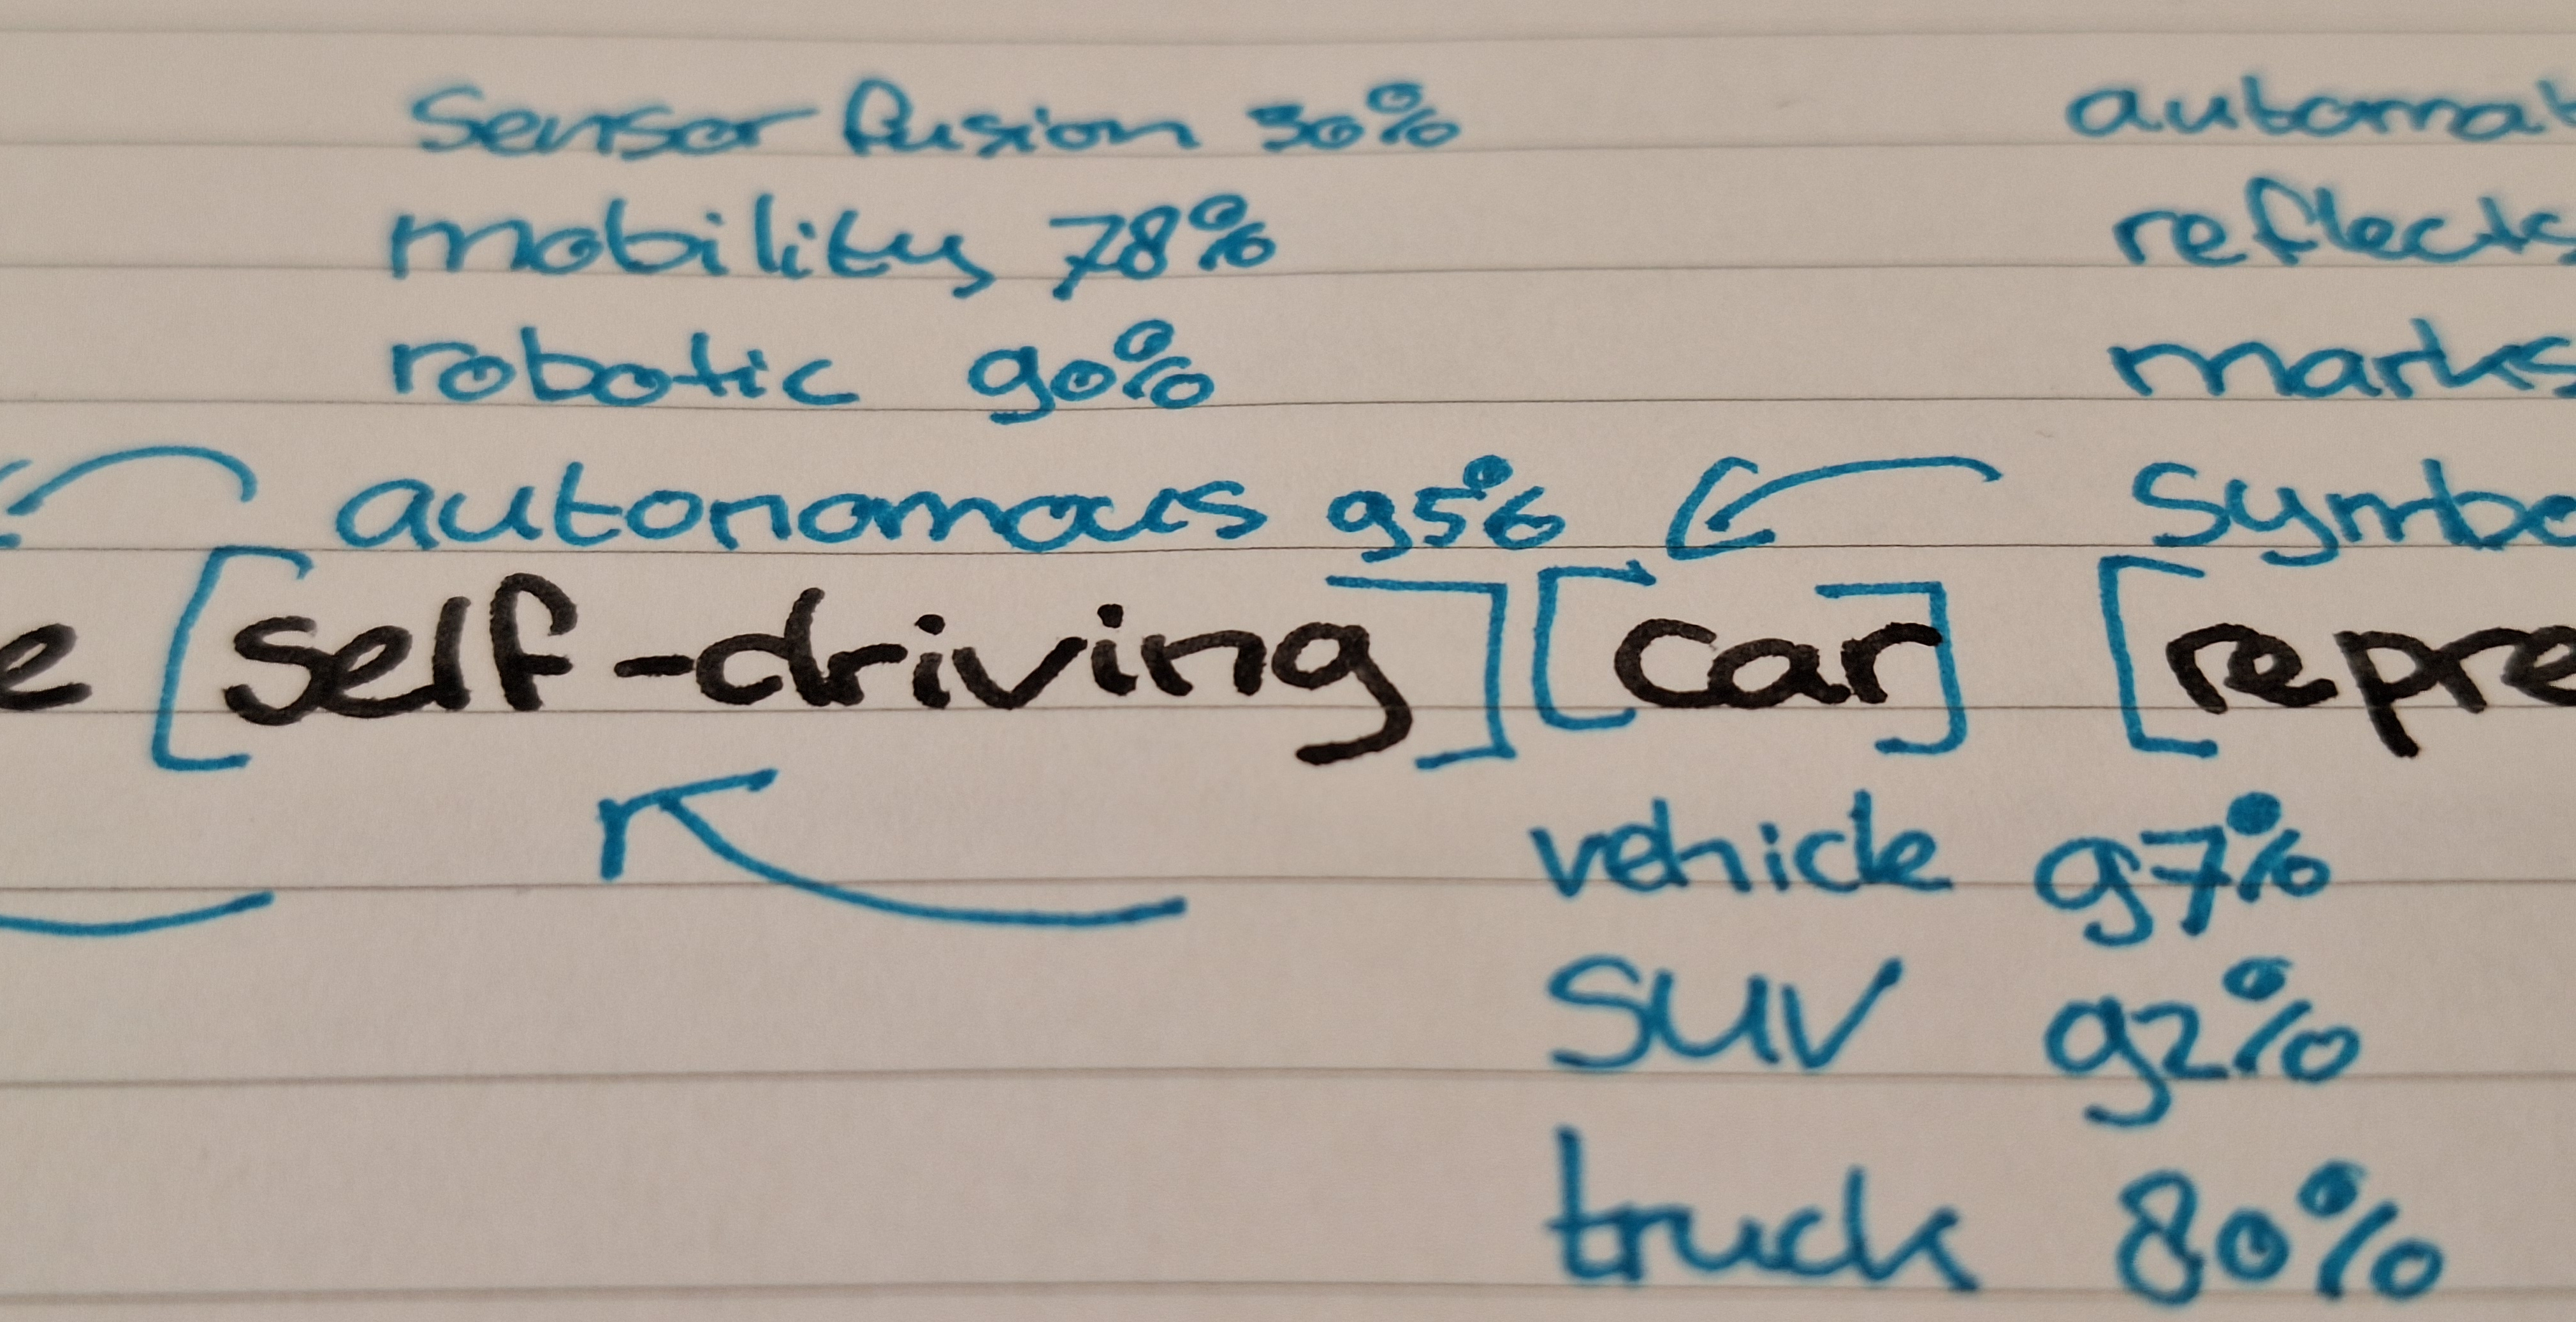 Sensor fusion 30% automat
mobility 78% reflects
robotic 90% marks
autonomous 95% Symbo
e [self-driving] [car] [repre
vehicle 97%
SUV 92%
truck 80%